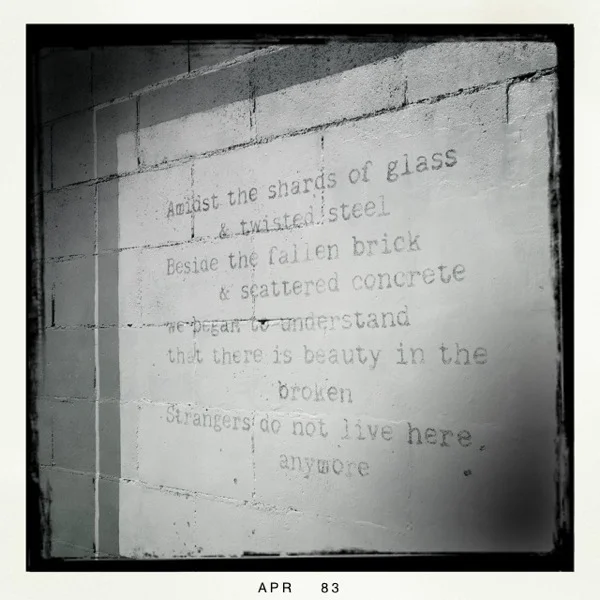 Amidst the shards of glass
& twisted steel
Beside the fallen brick
& scattered concrete
we began to understand
that there is beauty in the
broken
Strangers do not live here
anymore
APR 83